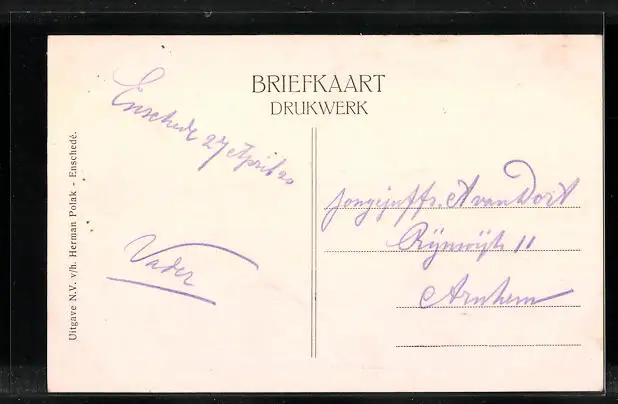 BRIEFKAART
DRUKWERK
Enschede 27 April 20
Vader
Jongejuffr. A van Dort
Rijnwijk 11
Arnhem
Uitgave N.V. v/h. Herman Polak - Enschedé.